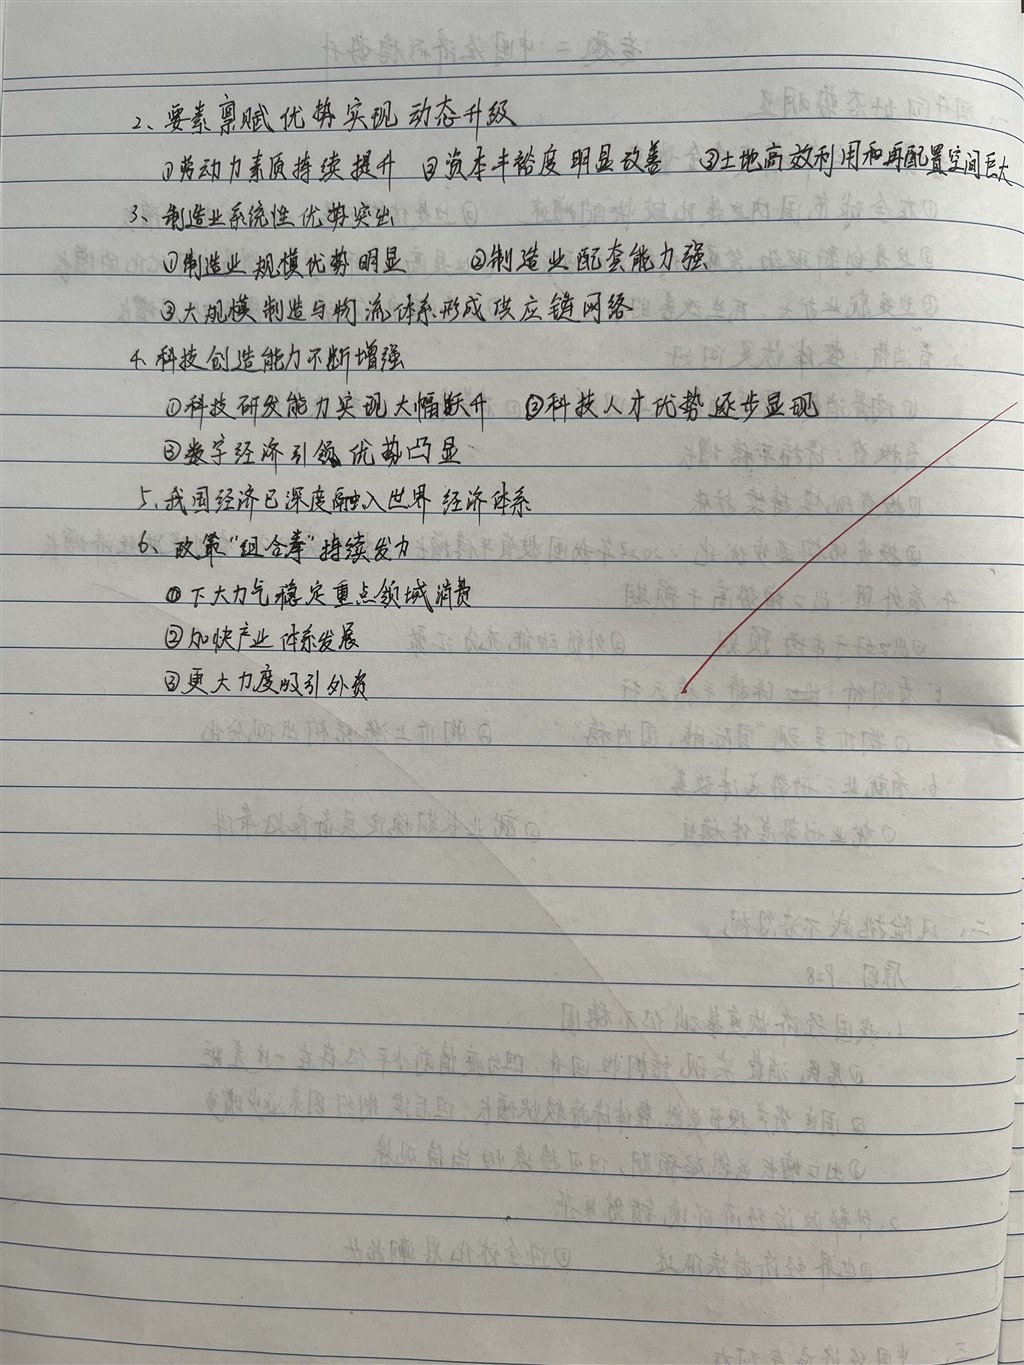 2、要素禀赋优势实现动态升级
①劳动力素质持续提升 ②资本丰裕度明显改善 ③土地高效利用和再配置空间巨大
3、制造业系统性优势突出
①制造业规模优势明显 ②制造业配套能力强
③大规模制造与物流体系形成供应链网络
4、科技创造能力不断增强
①科技研发能力实现大幅跃升 ②科技人才优势逐步显现
③数字经济引领优势凸显
5、我国经济已深度融入世界经济体系
6、政策“组合拳”持续发力
①下大力气稳定重点领域消费
②加快产业体系发展
③更大力度吸引外资